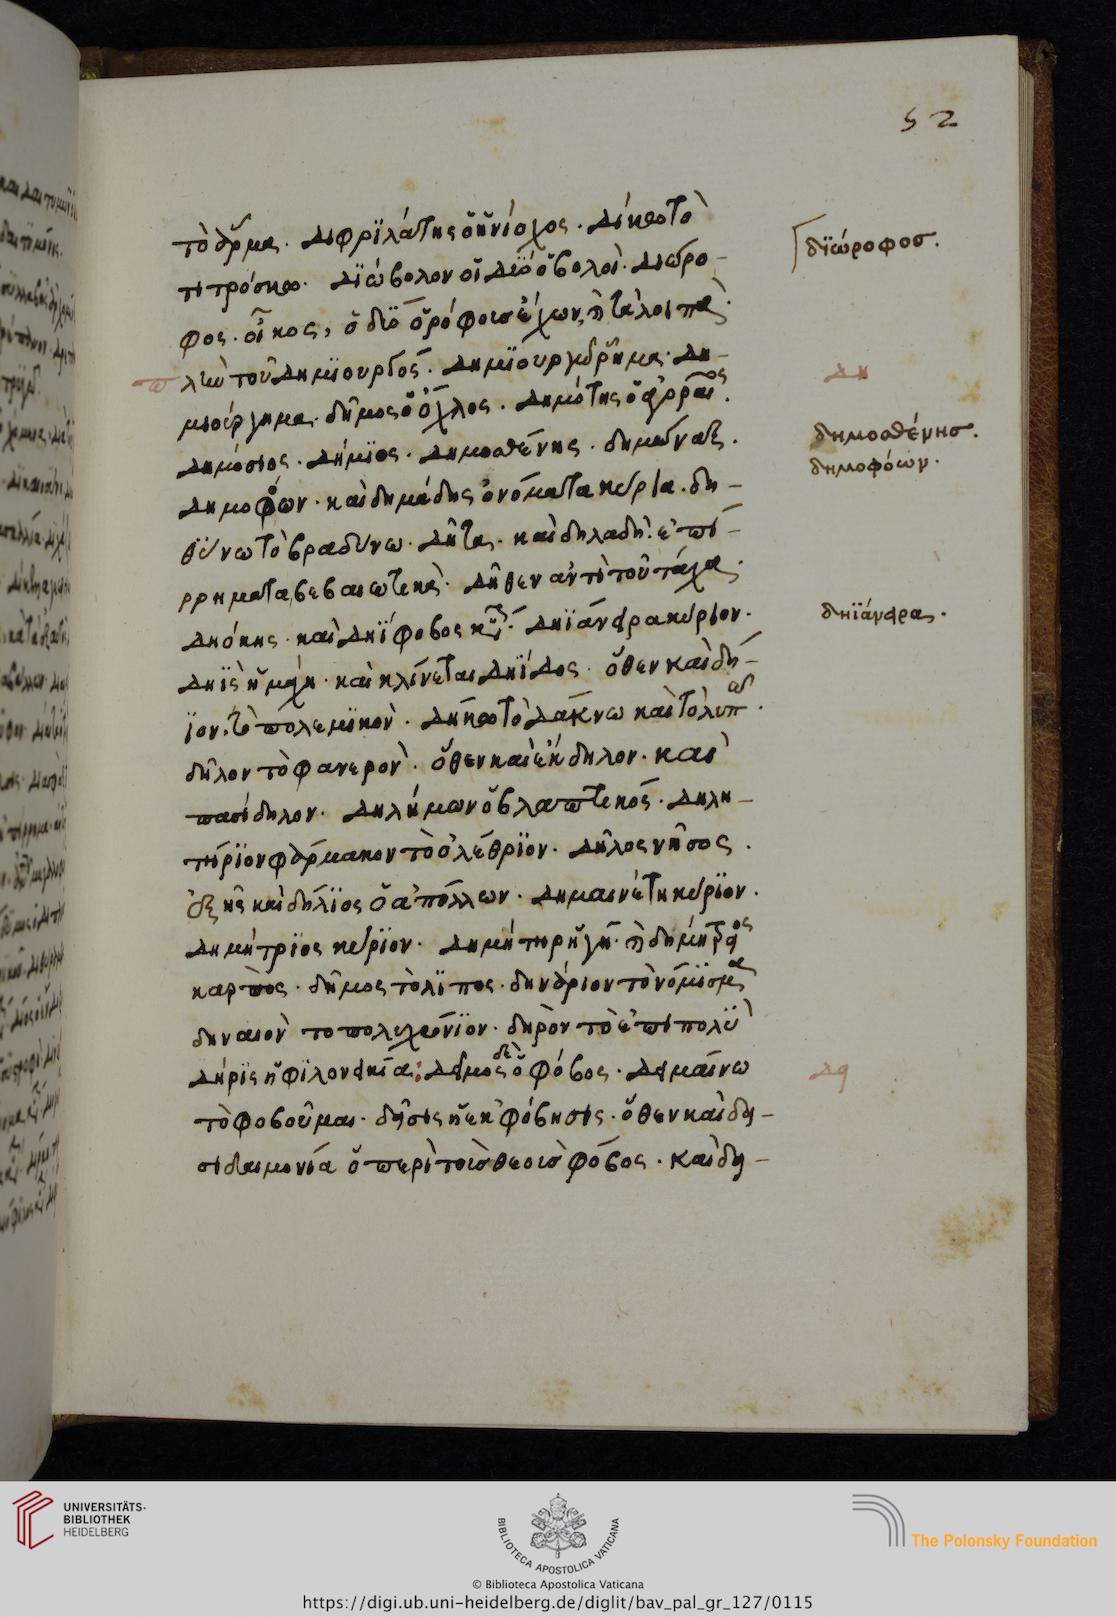 52
τὸ ἅρμα. διφρϊλάτης ὁ ἡνίοχος. δίκω τὸ
τιτρόσκω. διώβολον οἱ δύο ὀβολοί. διώρο-
φος. οἶκος, ὁ δύο ὀρόφους ἔχων,
διώροφοσ.
τοῦ δημϊουργός. δημιουργ
δη
μιούργημα. δῆμος ὁ ὄχλος. δημότης ὁ
δημόσιος. δήμϊος. δημοσθένης. δημῶναξ.
δημοσθένησ.
δημοφόων. καὶ δημάδης ὀνόματα κύρια. δη-
δημοφόων.
θύνω τὸ βραδύνω. δῆτα. καὶ δηλαδή. ἐπι-
ρρήματα βεβαιωτικὰ. δῆθεν ἀντὶ τοῦ τάχα.
δηόκης. καὶ δηΐφοβος δηϊάνειρα κύριον.
δηϊάνειρα.
δηῒς ἡ μάχη. καὶ κλίνεται δηΐδος. ὅθεν καὶ δή-
ϊον. τὸ πολεμϊκὸν. δήκω τὸ δάκνω καὶ τὸ λυπ
δῆλον τὸ φανερὸν. ὅθεν καὶ ἔκδηλον. καὶ
πασίδηλον. δηλήμων ὁ βλαπτικός. δηλη-
τήριον φάρμακον τὸ ὀλέθριον. δῆλος νῆσος.
ἐξ ἧς καὶ δήλϊος ὁ ἀπόλλων. δημαινέτη κύριον.
δημήτρϊος κύριον. δημήτηρ ἡ γῆ. ἢ δημητρος
καρπος. δῆμος τὸ λίπος. δηνάριον τὸ νόμισμα
δηναιὸν το πολυχρόνϊον. δηρὸν τὸ ἐπιπολὺ
δῆρις ἡ φϊλονεικία: δεῖμος δὲ ὁ φόβος. δειμαίνω
δει
τὸ φοβοῦμαι. δεῖσις ἡ ἐκφόβησις. ὅθεν καὶ δει-
σιδαιμονία ὁ περὶ τοὺς θεοὺς φόβος. καὶ δει-
UNIVERSITÄTS-
BIBLIOTHEK
HEIDELBERG
BIBLIOTECA APOSTOLICA VATICANA
The Polonsky Foundation
© Biblioteca Apostolica Vaticana
https://digi.ub.uni-heidelberg.de/diglit/bav_pal_gr_127/0115